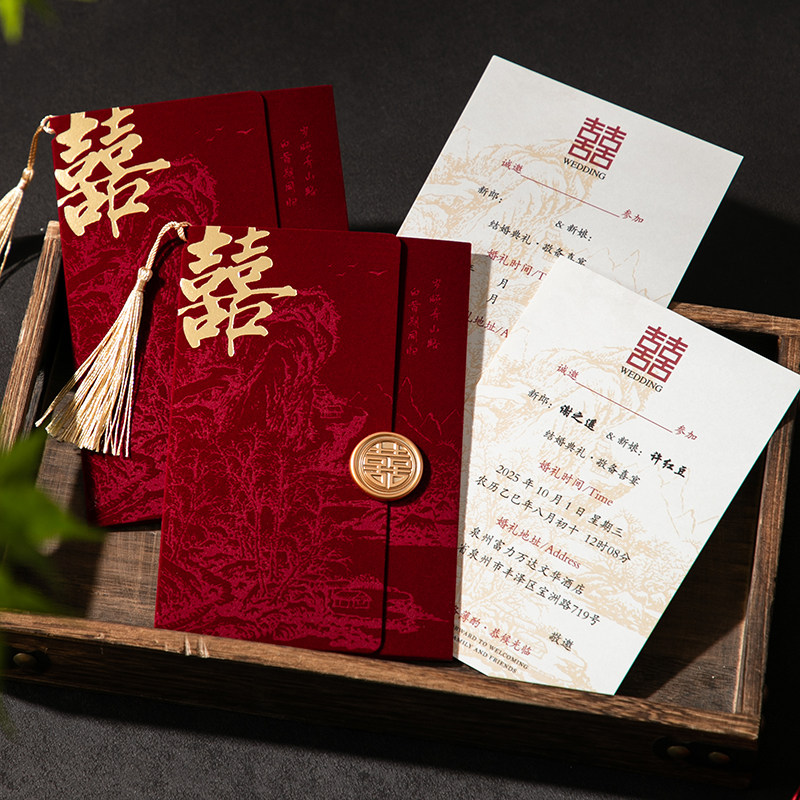 囍
囍
囍
囍
WEDDING
诚邀
参加
新郎：
& 新娘：
结婚典礼·敬备喜宴
婚礼时间/T
月
月
地址/A
囍
WEDDING
诚邀
参加
新郎：谢之遥 & 新娘：许红豆
结婚典礼·敬备喜宴
婚礼时间/Time
2025 年 10 月 1 日 星期三
农历乙巳年八月初十 12时08分
婚礼地址/Address
泉州富力万达文华酒店
省泉州市丰泽区宝洲路719号
敬邀
薄酌·恭候光临
WARD TO WELCOMING
FAMILY AND FRIENDS